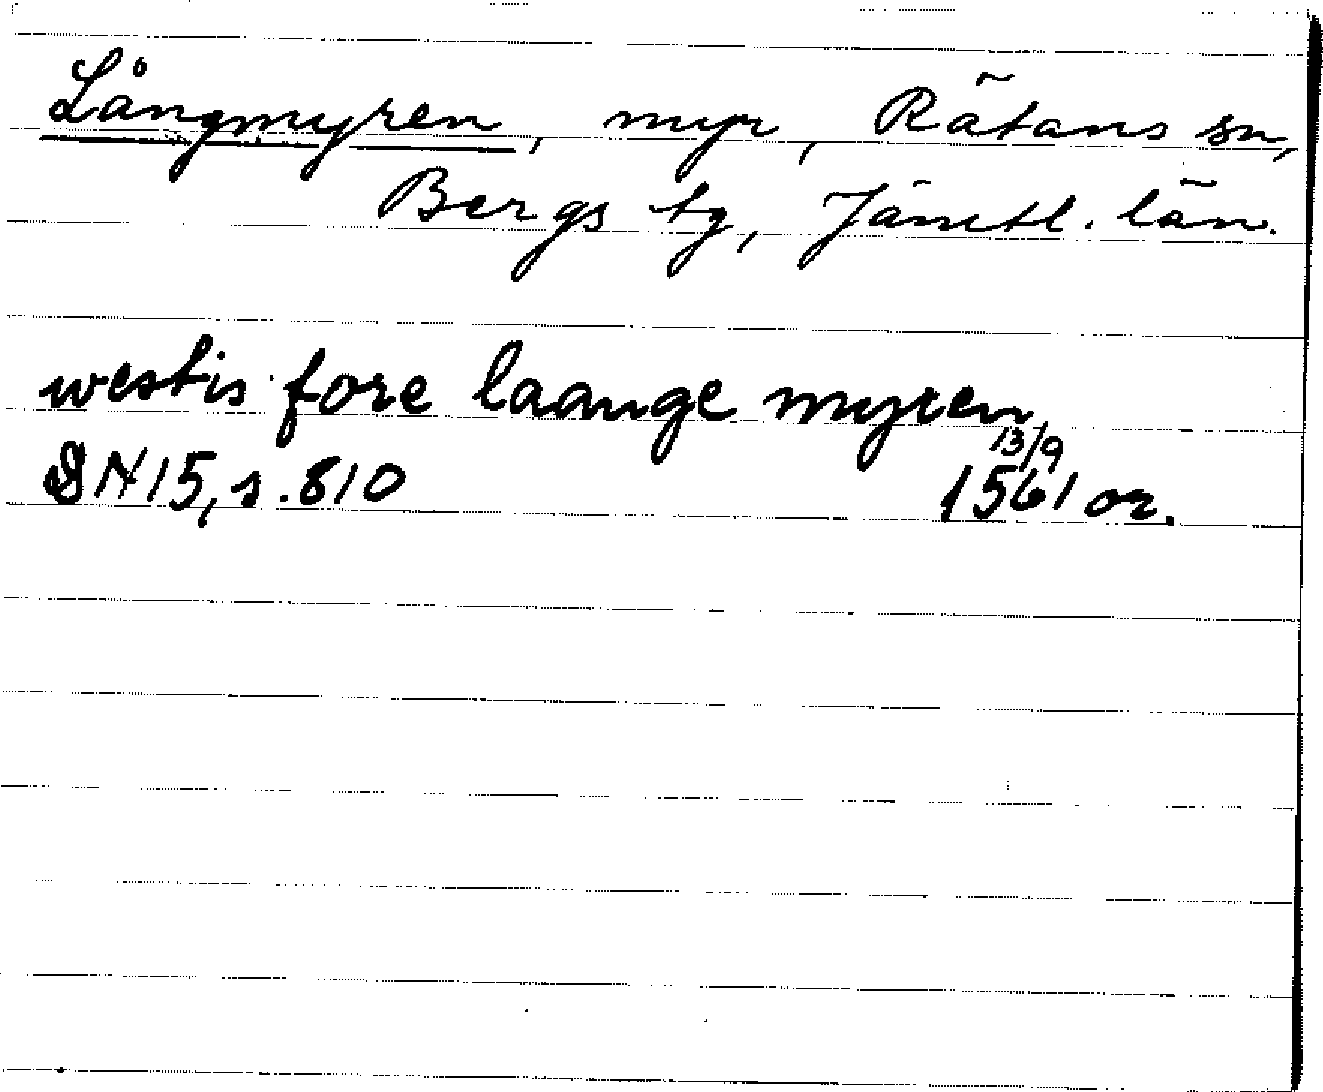 Långmyren, myr, Rätans sn,
Bergs tg, Jämtl. län.
westis fore laange myren
DN 15, s. 810 13/9 1561 or.